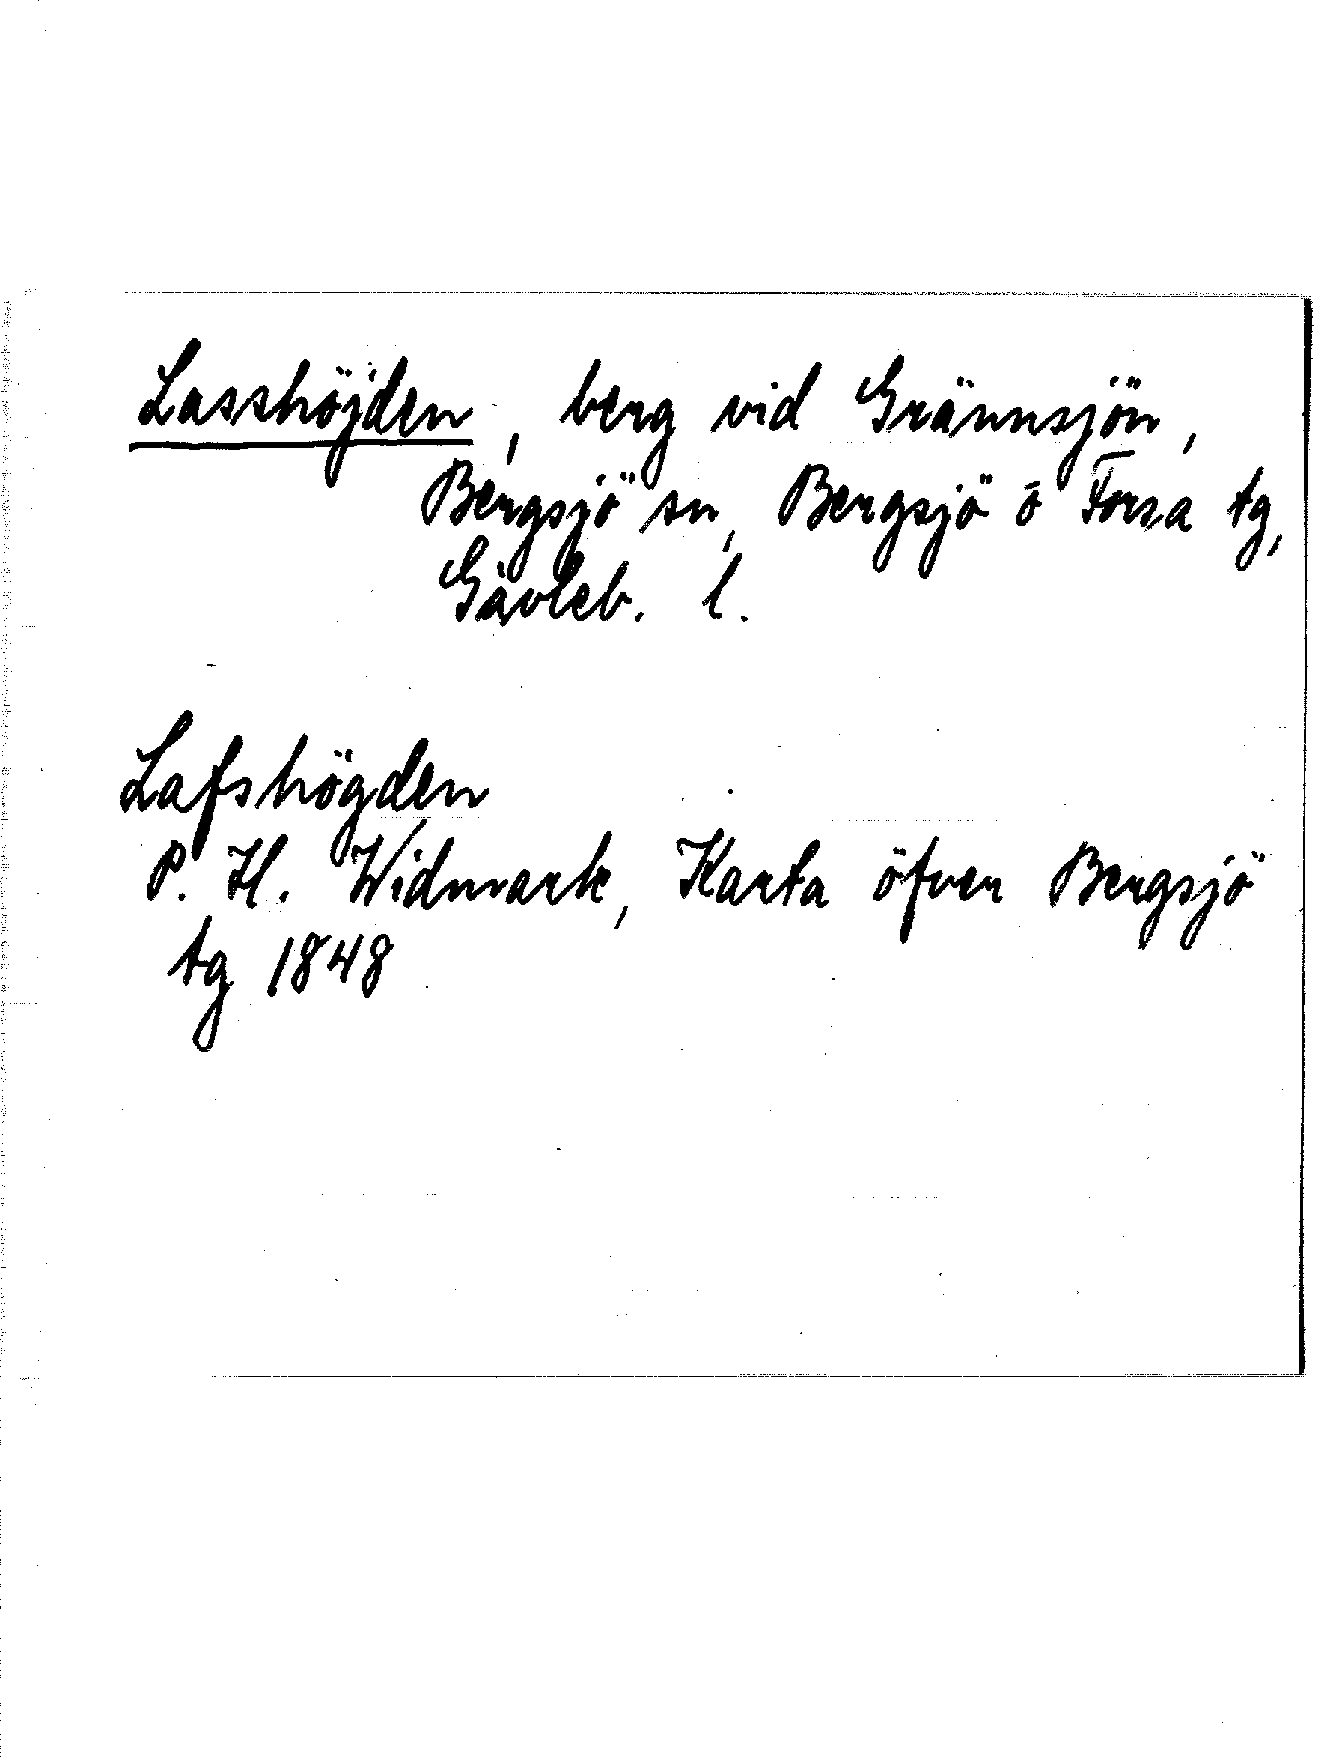 Lasshöjden, berg vid Grännsjön,
Bergsjö sn, Bergsjö o Forsa tg,
Gävleb. l.
Lafshögden
P. H. Widmark, Karta öfver Bergsjö
tg 1848